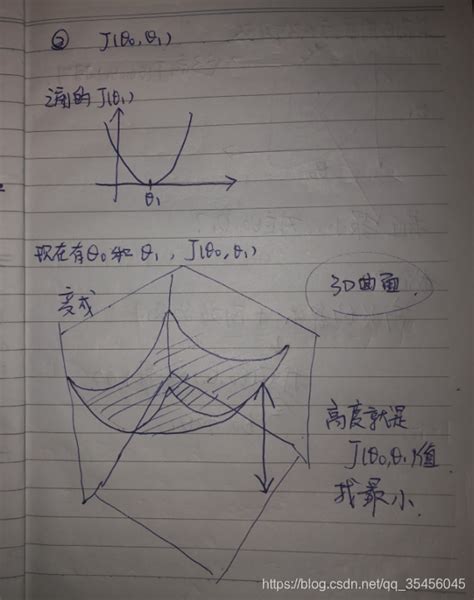 ② J(θ₀,θ₁)
之前的 J(θ₁)
θ₁
现在有θ₀和 θ₁，J(θ₀,θ₁)
变成
3D曲面.
高度就是
J(θ₀,θ₁)值
找最小.
https://blog.csdn.net/qq_35456045